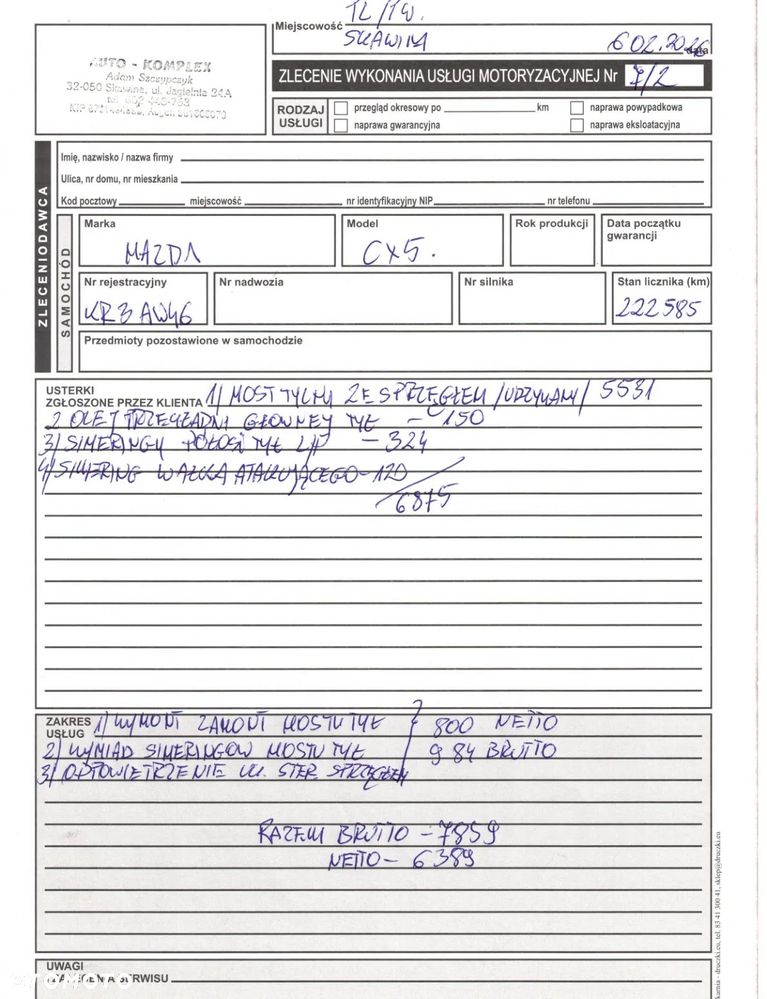 TL/TW.
Miejscowość SKAWINA 6 02.2026 data
AUTO - KOMPLEX
Adam Szczypczyk
32-050 Skawina, ul. Jagielnia 24A
ZLECENIE WYKONANIA USŁUGI MOTORYZACYJNEJ Nr 7/2
RODZAJ USŁUGI
przegląd okresowy po km
naprawa powypadkowa
naprawa gwarancyjna
naprawa eksloatacyjna
ZLECENIODAWCA
Imię, nazwisko / nazwa firmy
Ulica, nr domu, nr mieszkania
Kod pocztowy miejscowość nr identyfikacyjny NIP nr telefonu
SAMOCHÓD
Marka MAZDA
Model CX5.
Rok produkcji
Data początku gwarancji
Nr rejestracyjny KR3AW46
Nr nadwozia
Nr silnika
Stan licznika (km) 222585
Przedmioty pozostawione w samochodzie
USTERKI
ZGŁOSZONE PRZEZ KLIENTA 1/ MOST TYLNI ZE SPRZĘGŁEM /UŻYWANY/ 5531
2 OLEJ PRZEKŁADNI GŁÓWNEJ TYŁ - 150
3/ SIMERINGI PÓŁOSI TYŁ L/P - 324
4/ SIMERING WAŁKA ATAKUJĄCEGO - 120
6875
ZAKRES USŁUG 1/ WYMONT ZAMONT MOSTU TYŁ 800 NETTO
2/ WYMIANA SIMERINGÓW MOSTU TYŁ 984 BRUTTO
3/ ODPOWIETRZENIE UK. STER. SPRZĘGŁEM
RAZEM BRUTTO - 7859
NETTO - 6389
UWAGI
I ZALECENIA SERWISU
OTOMOTO
karnia - druczki.eu, tel. 83 41 300 41, sklep@druczki.eu